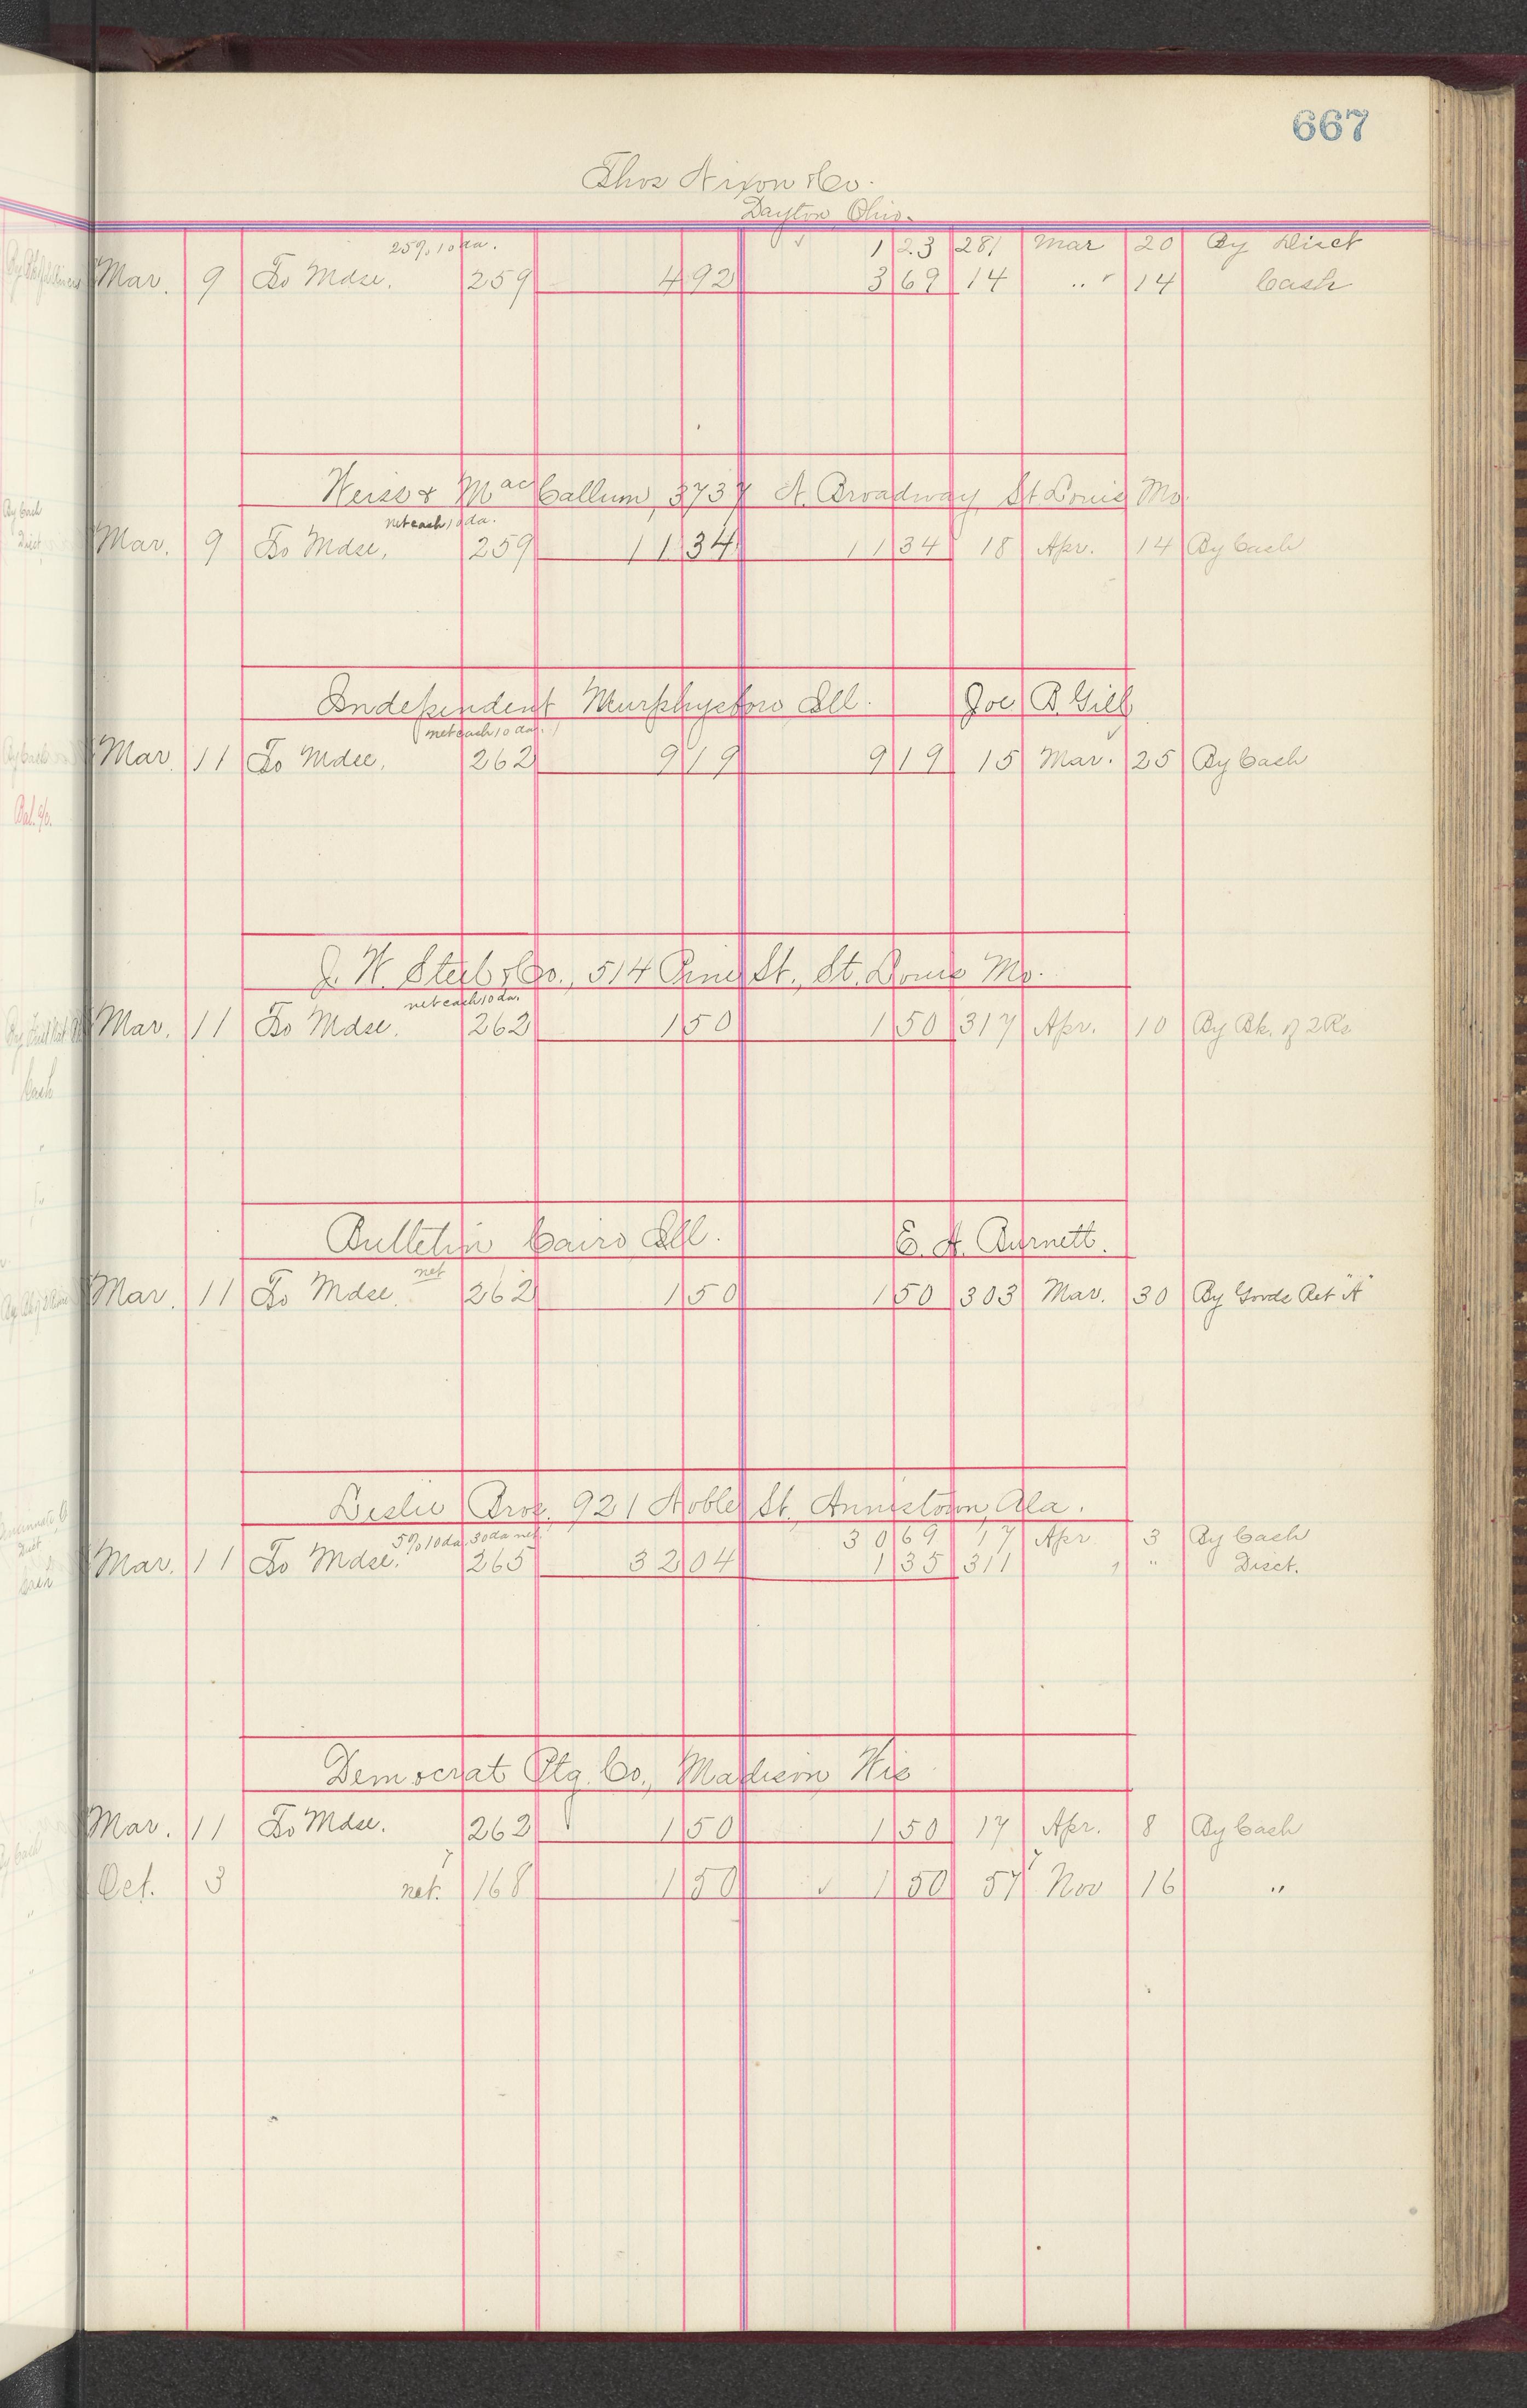 667
Thos Nixon & Co.
Dayton, Ohio.
25% 10 da. 1 23 281 Mar 20 By Disct
Mar. 9 To Mdse. 259 4 92 3 69 14 " 14 Cash
Weiss & MacCallum, 3737 N. Broadway, St. Louis Mo.
net cash 10 da.
Mar. 9 To Mdse. 259 11 34 11 34 18 Apr. 14 By Cash
Independent Murphysboro, Ill. Joe B. Gill
net cash 10 da.
Mar. 11 To Mdse. 262 9 19 9 19 15 Mar. 25 By Cash
J. W. Steele & Co., 514 Pine St., St. Louis Mo.
net cash 10 da.
Mar. 11 To Mdse. 262 1 50 1 50 317 Apr. 10 By Bk. of 2 Rs
Bulletin Cairo, Ill. E. A. Burnett.
net
Mar. 11 To Mdse. 262 1 50 1 50 303 Mar. 30 By Goods Ret "A"
Leslie Bros. 921 Noble St., Annistown, Ala.
5% 10 da. 30 da net. 30 69 17 Apr 3 By Cash
Mar. 11 To Mdse. 265 32 04 1 35 311 " Disct.
Democrat Ptg. Co., Madison, Wis
Mar. 11 To Mdse. 262 1 50 1 50 17 Apr. 8 By Cash
7 7
Oct. 3 net. 168 1 50 ✓ 1 50 57 Nov 16 "